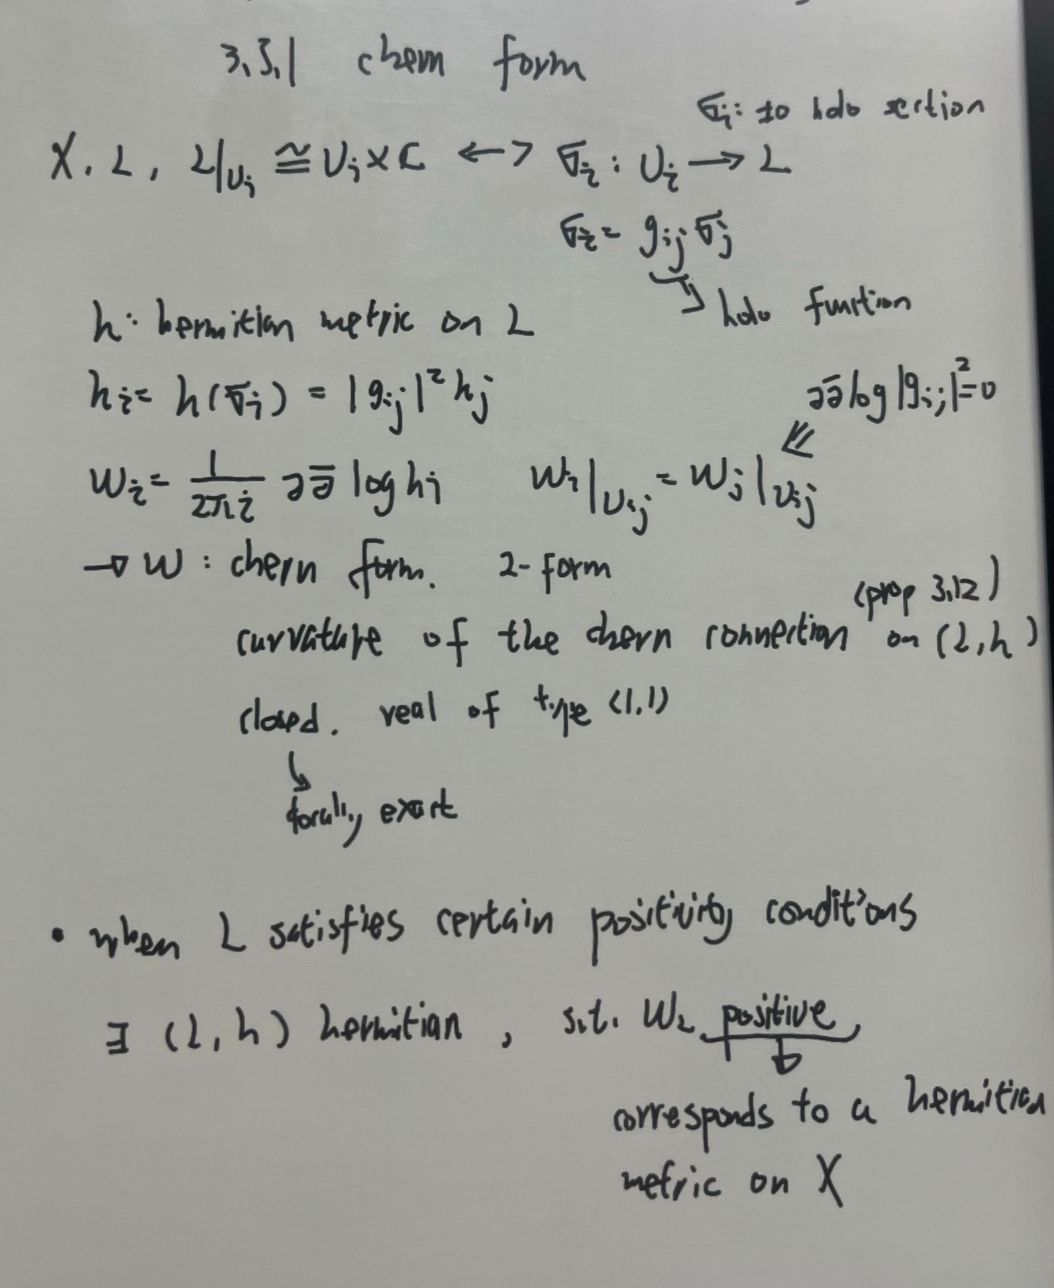 3.3.1 chern form
σᵢ: ≠0 holo section
X. L, L|_{Uᵢ} ≅ Uᵢ×ℂ ⟷ σᵢ : Uᵢ → L
σᵢ = gᵢⱼ σⱼ
→ holo function
h: hermitian metric on L
hᵢ = h(σᵢ) = |gᵢⱼ|² hⱼ
∂∂̄ log |gᵢⱼ|² = 0
ωᵢ = 1/(2πi) ∂∂̄ log hᵢ ωᵢ|_{Uᵢⱼ} = ωⱼ|_{Uᵢⱼ} ⇐
→ ω : chern form. 2-form
(prop 3.12)
curvature of the chern connection on (L, h)
closed. real of type (1,1)
↳ locally exact
• when L satisfies certain positivity conditions
∃ (L, h) hermitian, s.t. ω_L positive,
corresponds to a hermitian
metric on X